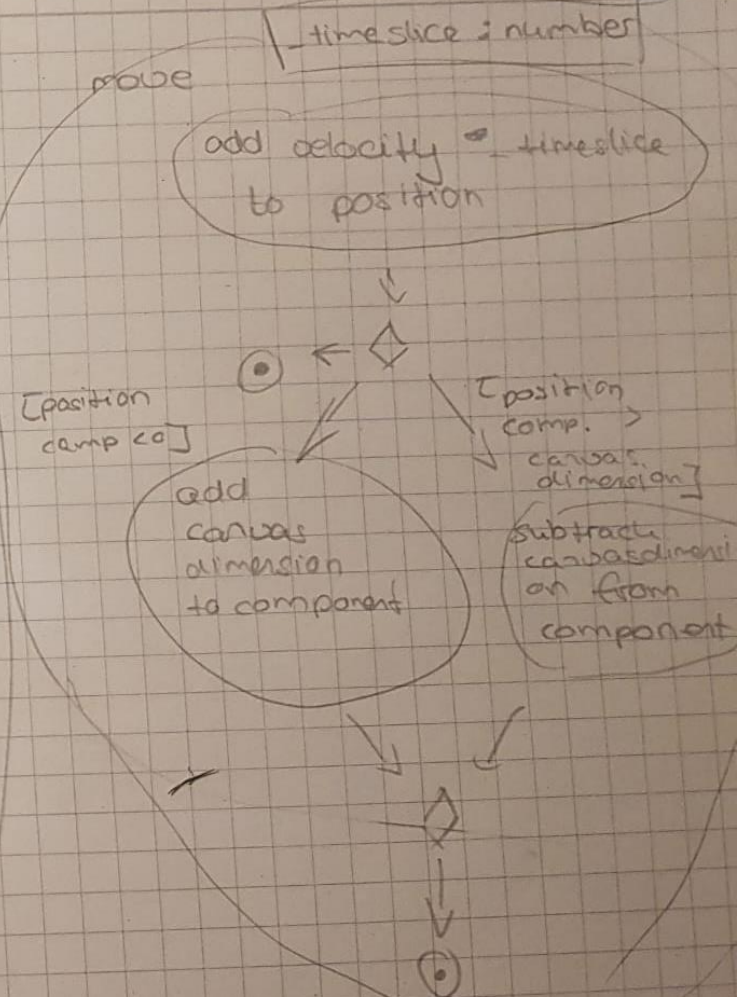 _timeslice : number
move
add velocity * _timeslice
to position
[position
comp <0]
[position
comp. >
canvas.
dimension]
add
canvas
dimension
to component
subtract
canvasdimensi
on from
component